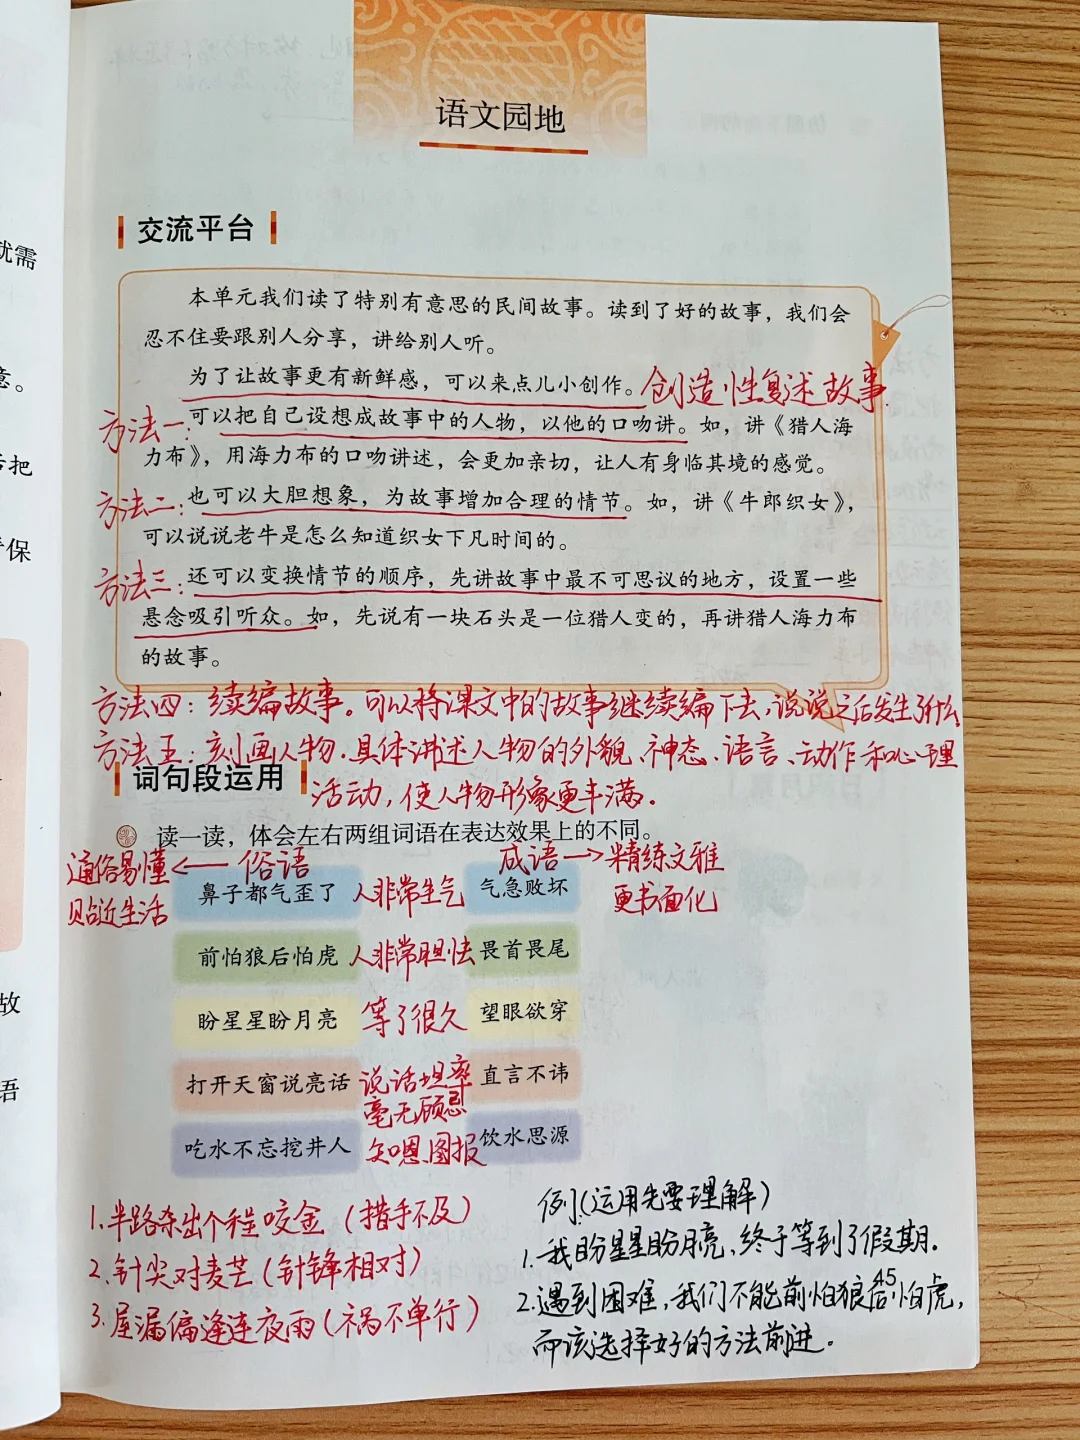 语文园地
交流平台
本单元我们读了特别有意思的民间故事。读到了好的故事，我们会
忍不住要跟别人分享，讲给别人听。
为了让故事更有新鲜感，可以来点儿小创作。创造性复述故事
方法一：可以把自己设想成故事中的人物，以他的口吻讲。如，讲《猎人海
力布》，用海力布的口吻讲述，会更加亲切，让人有身临其境的感觉。
方法二：也可以大胆想象，为故事增加合理的情节。如，讲《牛郎织女》，
可以说说老牛是怎么知道织女下凡时间的。
方法三：还可以变换情节的顺序，先讲故事中最不可思议的地方，设置一些
悬念吸引听众。如，先说有一块石头是一位猎人变的，再讲猎人海力布
的故事。
方法四：续编故事。可以将课文中的故事继续编下去，说说之后发生了什么
方法五：刻画人物.具体讲述人物的外貌、神态、语言、动作和心理
活动，使人物形象更丰满.
词句段运用
读一读，体会左右两组词语在表达效果上的不同。
通俗易懂 ← 俗语 成语 → 精练文雅
贴近生活 更书面化
鼻子都气歪了 人非常生气 气急败坏
前怕狼后怕虎 人非常胆怯 畏首畏尾
盼星星盼月亮 等了很久 望眼欲穿
打开天窗说亮话 说话坦率 直言不讳
毫无顾忌
吃水不忘挖井人 知恩图报 饮水思源
1.半路杀出个程咬金（措手不及）
2.针尖对麦芒（针锋相对）
3.屋漏偏逢连夜雨（祸不单行）
例：（运用先要理解）
1.我盼星星盼月亮、终于等到了假期.
2.遇到困难，我们不能前怕狼后怕虎，
而该选择好的方法前进.
45
就需
意。
后把
保
故
语